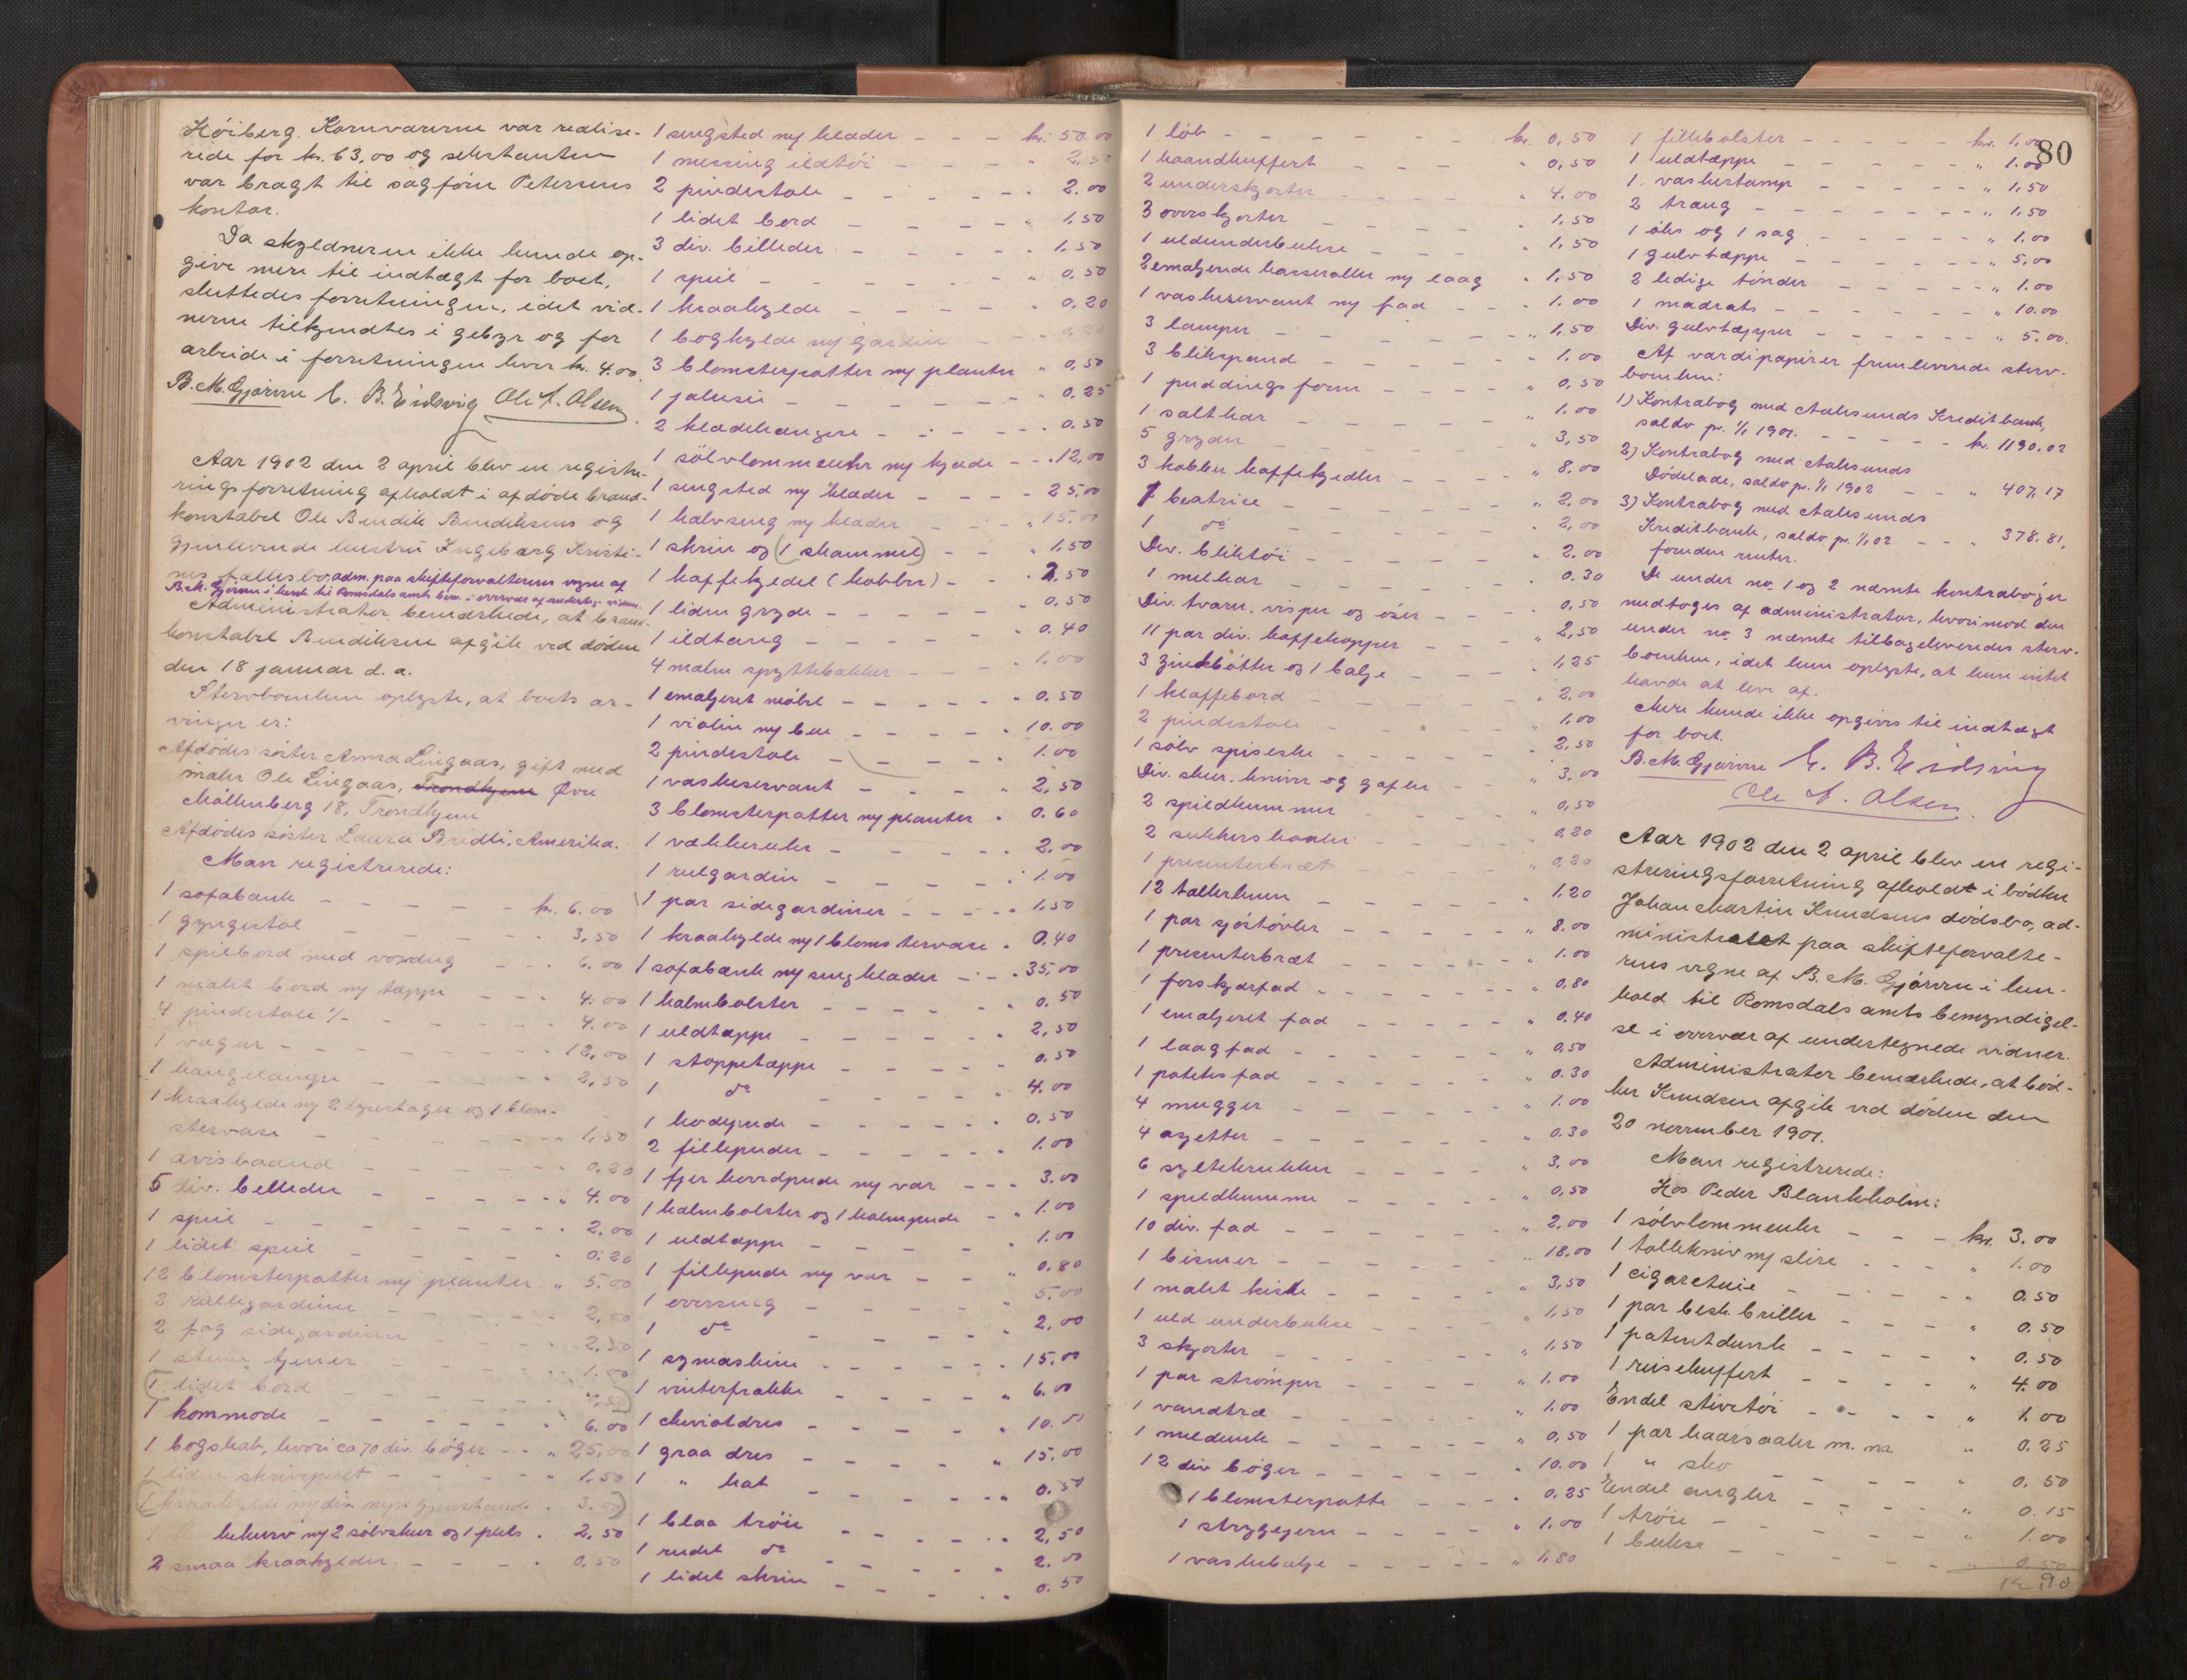 Høiberg. Kornvarerne var realise-
rede for kr. 63,00 og substanten
var bragt til sagfører Petersens
kontor.
Da skyldneren ikke kunde op-
give mere til indtægt for boet,
sluttedes forretningen, idet vid-
nerne tilkjendtes i gebyr og for
arbeide i forretningen hver kr. 4.00.
B. M. Gjørven E. B. Eidsvig Ole A. Olsen
Aar 1902 den 2 april blev en registre-
ringsforretning afholdt i afdøde brand-
konstabel Ole Bendik Bendiksens og
gjenlevende hustru Ingeborg Kristi-
nes fællesbo, adm. paa skifteforvalterens vegne af
B. M. Gjørven i henh. til Romsdals amts bem. i overvær af undertegn. vidner.
Administrator bemærkede, at brand-
konstabel Bendiksen afgik ved døden
den 18 januar d. a.
Stervboenken oplyste, at boets ar-
vinger er:
Afdødes søster Anna Lingaas, gift med
maler Ole Lingaas, Trondhjem Øvre
Møllenberg 18, Trondhjem
Afdødes søster Laura Bredli, Amerika.
Man registrerede:
1 sofabænk - - - kr. 6.00
1 gyngestol - - - 3,50
1 spilbord med voxdug - - 6.00
1 malet bord m/ tæppe - - 4.00
4 pindestole - - - 4.00
1 vægur - - - 12,00
1 hængelampe - - - 2,50
1 kraahylde m/ 2 lysestager og 1 blom-
stervase - - - 1,50
1 avisbaand - - - 0.20
5 div. billeder - - - " 4.00
1 speil - - - 2.00
1 lidet speil - - - 0.20
12 blomsterpotter m/ planter " 5.00
2 rullegardiner - - - 2,00
2 fag sidegardiner - - - 2,50
1 stum tjener - - - 1.00
(1 lidet bord - - -)
1 kommode - - - 6.00
1 bogskab, hvori ca 70 div. bøger - - " 25,00
1 liden skrivepult - - - " 1,50
(1 kraahylde m/ div. nips gjenstande . 3.00)
1 kurv m/ 2 sølvskeer og 1 puds . 2,50
2 smaa kraahylder - - - 0,50
1 sengsted m/ klæder - - - kr. 50.00
1 messing ildtøi - - - " 2,50
2 pindestole - - - 2.00
1 lidet bord - - - " 1,50
3 div. billeder - - - 1,50
1 speil - - - " 0.50
1 kraahylde - - - 0,20
1 boghylde m/ gardin - - 0,20
3 blomsterpotter m/ planter " 0,50
1 jalusi - - - " 0,25
2 klædehængere - - - 0.50
1 sølvlommeuhr m/ kjæde - - . 12,00
1 sengsted m/ klæder - - - 25,00
1 halvseng m/ klæder - - " 15.00
1 skrin og (1 skammel) - - " 1,50
1 kaffekjedel (kobber) - - . 2,50
1 liden gryde - - - " 0.50
1 ildtang - - - " 0.40
4 malm spyttebakker - - 1.00
1 emaljeret møbel - - - " 0.50
1 violin m/ bue - - - " 10.00
2 pindestole - - - " 1.00
1 vaskeservant - - - " 2,50
3 blomsterpotter m/ planter . 0.60
1 vækkeruhr - - - 2,00
1 rulgardin - - - " 1.00
1 par sidegardiner - - - " 1,50
1 kraahylde m/ 1 blomstervase . 0.40
1 sofabænk m/ sengklæder - - . 35,00
1 halmbolster - - - " 0.50
1 uldtæppe - - - " 2,50
1 stoppetæppe - - - " 0.50
1 do - - - " 4.00
1 hodepude - - - " 0,50
2 fillepuder - - - 1.00
1 fjer hovedpude m/ var - - - 3.00
1 halmbolster og 1 halmpude - " 1.00
1 uldtæppe - - - " 1.00
1 fillepude m/ var - - " 0.80
1 overseng - - - " 5.00
1 do - - - " 2,00
1 symaskine - - - 15,00
1 vinterfrakke - - - " 6.00
1 cheviotdres - - - " 10.50
1 graa dres - - - " 15.00
1 " hat - - - " 0.50
1 blaa trøie - - - 2,50
1 rudet do - - - " 2.00
1 lidet skrin - - - " 0.50
1 løb - - - kr. 0,50
1 haandkuffert - - - " 0,50
2 underskjorter - - - " 4.00
3 overskjorter - - - " 1,50
1 uldunderbukse - - - " 1,50
2 emaljerede kasseroller m/ laag " 1,50
1 vaskeservant m/ fad - - " 1.00
3 lamper - - - " 1,50
3 blikspand - - - " 1.00
1 puddingsform - - - " 0,50
1 saltkar - - - " 1.00
5 gryder - - - " 3,50
3 kobber kaffekjedler - - - " 8.00
1 beatrice - - - " 2.00
1 do - - - " 2,00
Div. bliktøi - - - " 2.00
1 melkar - - - " 0.30
Div. tvarer, visper og øser - - " 0,50
11 par div. kaffekopper - - - " 2,50
3 zinkbøtter og 1 balje - - - " 1,25
1 klaffebord - - - " 2,00
2 pindestole - - - " 1.00
1 sølv spiseske - - - " 2.50
Div. skeer, kniver og gafler - - " 3,00
2 spildkummer - - - " 0,50
2 sukkerskaaler - - - " 0,20
1 presenterbræt - - - " 0,20
12 tallerkener - - - " 1.20
1 par sjøstøvler - - - " 8.00
1 presenterbræt - - - " 1.00
1 forskjærfad - - - " 0,80
1 emaljeret fad - - - " 0.40
1 laagfad - - - " 0,50
1 potetesfad - - - " 0.30
4 mugger - - - " 1.00
4 azetter - - - " 0.30
6 syltekrukker - - - " 3,00
1 spildkumme - - - " 0,50
10 div. fad - - - " 2,00
1 bismer - - - " 18.00
1 malet kiste - - - " 3,50
1 uld underbukse - - - " 1,50
3 skjorter - - - " 1,50
1 par strømper - - - " 1.00
1 vandtræ - - - " 1.00
1 meldunk - - - " 0,50
12 div bøger - - - " 10.00
1 blomsterpotte - - - " 0,25
1 strygejern - - - " 1.00
1 vaskebalje - - - " 1,80
80
1 fillebolster - - - kr. 1,00
1 uldtæppe - - - " 1.00
1 vaskestamp - - - " 1,50
2 traug - - - " 1,50
1 øks og 1 sag - - - " 1.00
1 gulvtæppe - - - " 5,00
2 ledige tønder - - - " 1.00
1 madrats - - - " 10.00
Div. gulvtæpper - - - " 5.00.
Af værdipapirer fremleverede sterv-
boenken:
1) Kontrabog med Aalesunds Kreditbank,
saldo pr. 1/1 1901. - - - kr. 1190.02
2) Kontrabog med Aalesunds
Dødelade, saldo pr. 1/1 1902 - - " 407,17
3) Kontrabog med Aalesunds
Kreditbank, saldo pr. 1/1 02 - - " 378.81,
foruden renter.
De under no. 1 og 2 nævnte kontrabøger
medtoges af administrator, hvorimod den
under no. 3 nævnte tilbageleveredes sterv-
boenken, idet hun oplyste, at hun intet
havde at leve af.
Mere kunde ikke opgives til indtægt
for boet.
B. M. Gjørven E. B. Eidsvig
Ole A. Olsen
Aar 1902 den 2 april blev en regi-
streringsforretning afholdt i bødker
Johan Martin Knudsens dødsbo, ad-
ministreret paa skifteforvalte-
rens vegne af B. M. Gjørven i hen-
hold til Romsdals amts bemyndigel-
se i overvær af undertegnede vidner.
Administrator bemærkede, at bød-
ker Knudsen afgik ved døden den
20 november 1901.
Man registrerede:
Hos Peder Blankholm:
1 sølvlommeuhr - - - kr. 3.00
1 tollekniv m/ slire - - - " 1.00
1 cigaretuie - - - " 0.50
1 par besk. briller - - - " 0.50
1 patentdunk - - - " 0.50
1 reisekuffert - - - " 4.00
Endel stivetøi - - - " 1.00
1 par haarsaaler m. m. " 0.25
1 " sko - - - " 0.50
Endel angler - - - " 0.15
1 trøie - - - " 1.00
1 bukse - - - " 0.50